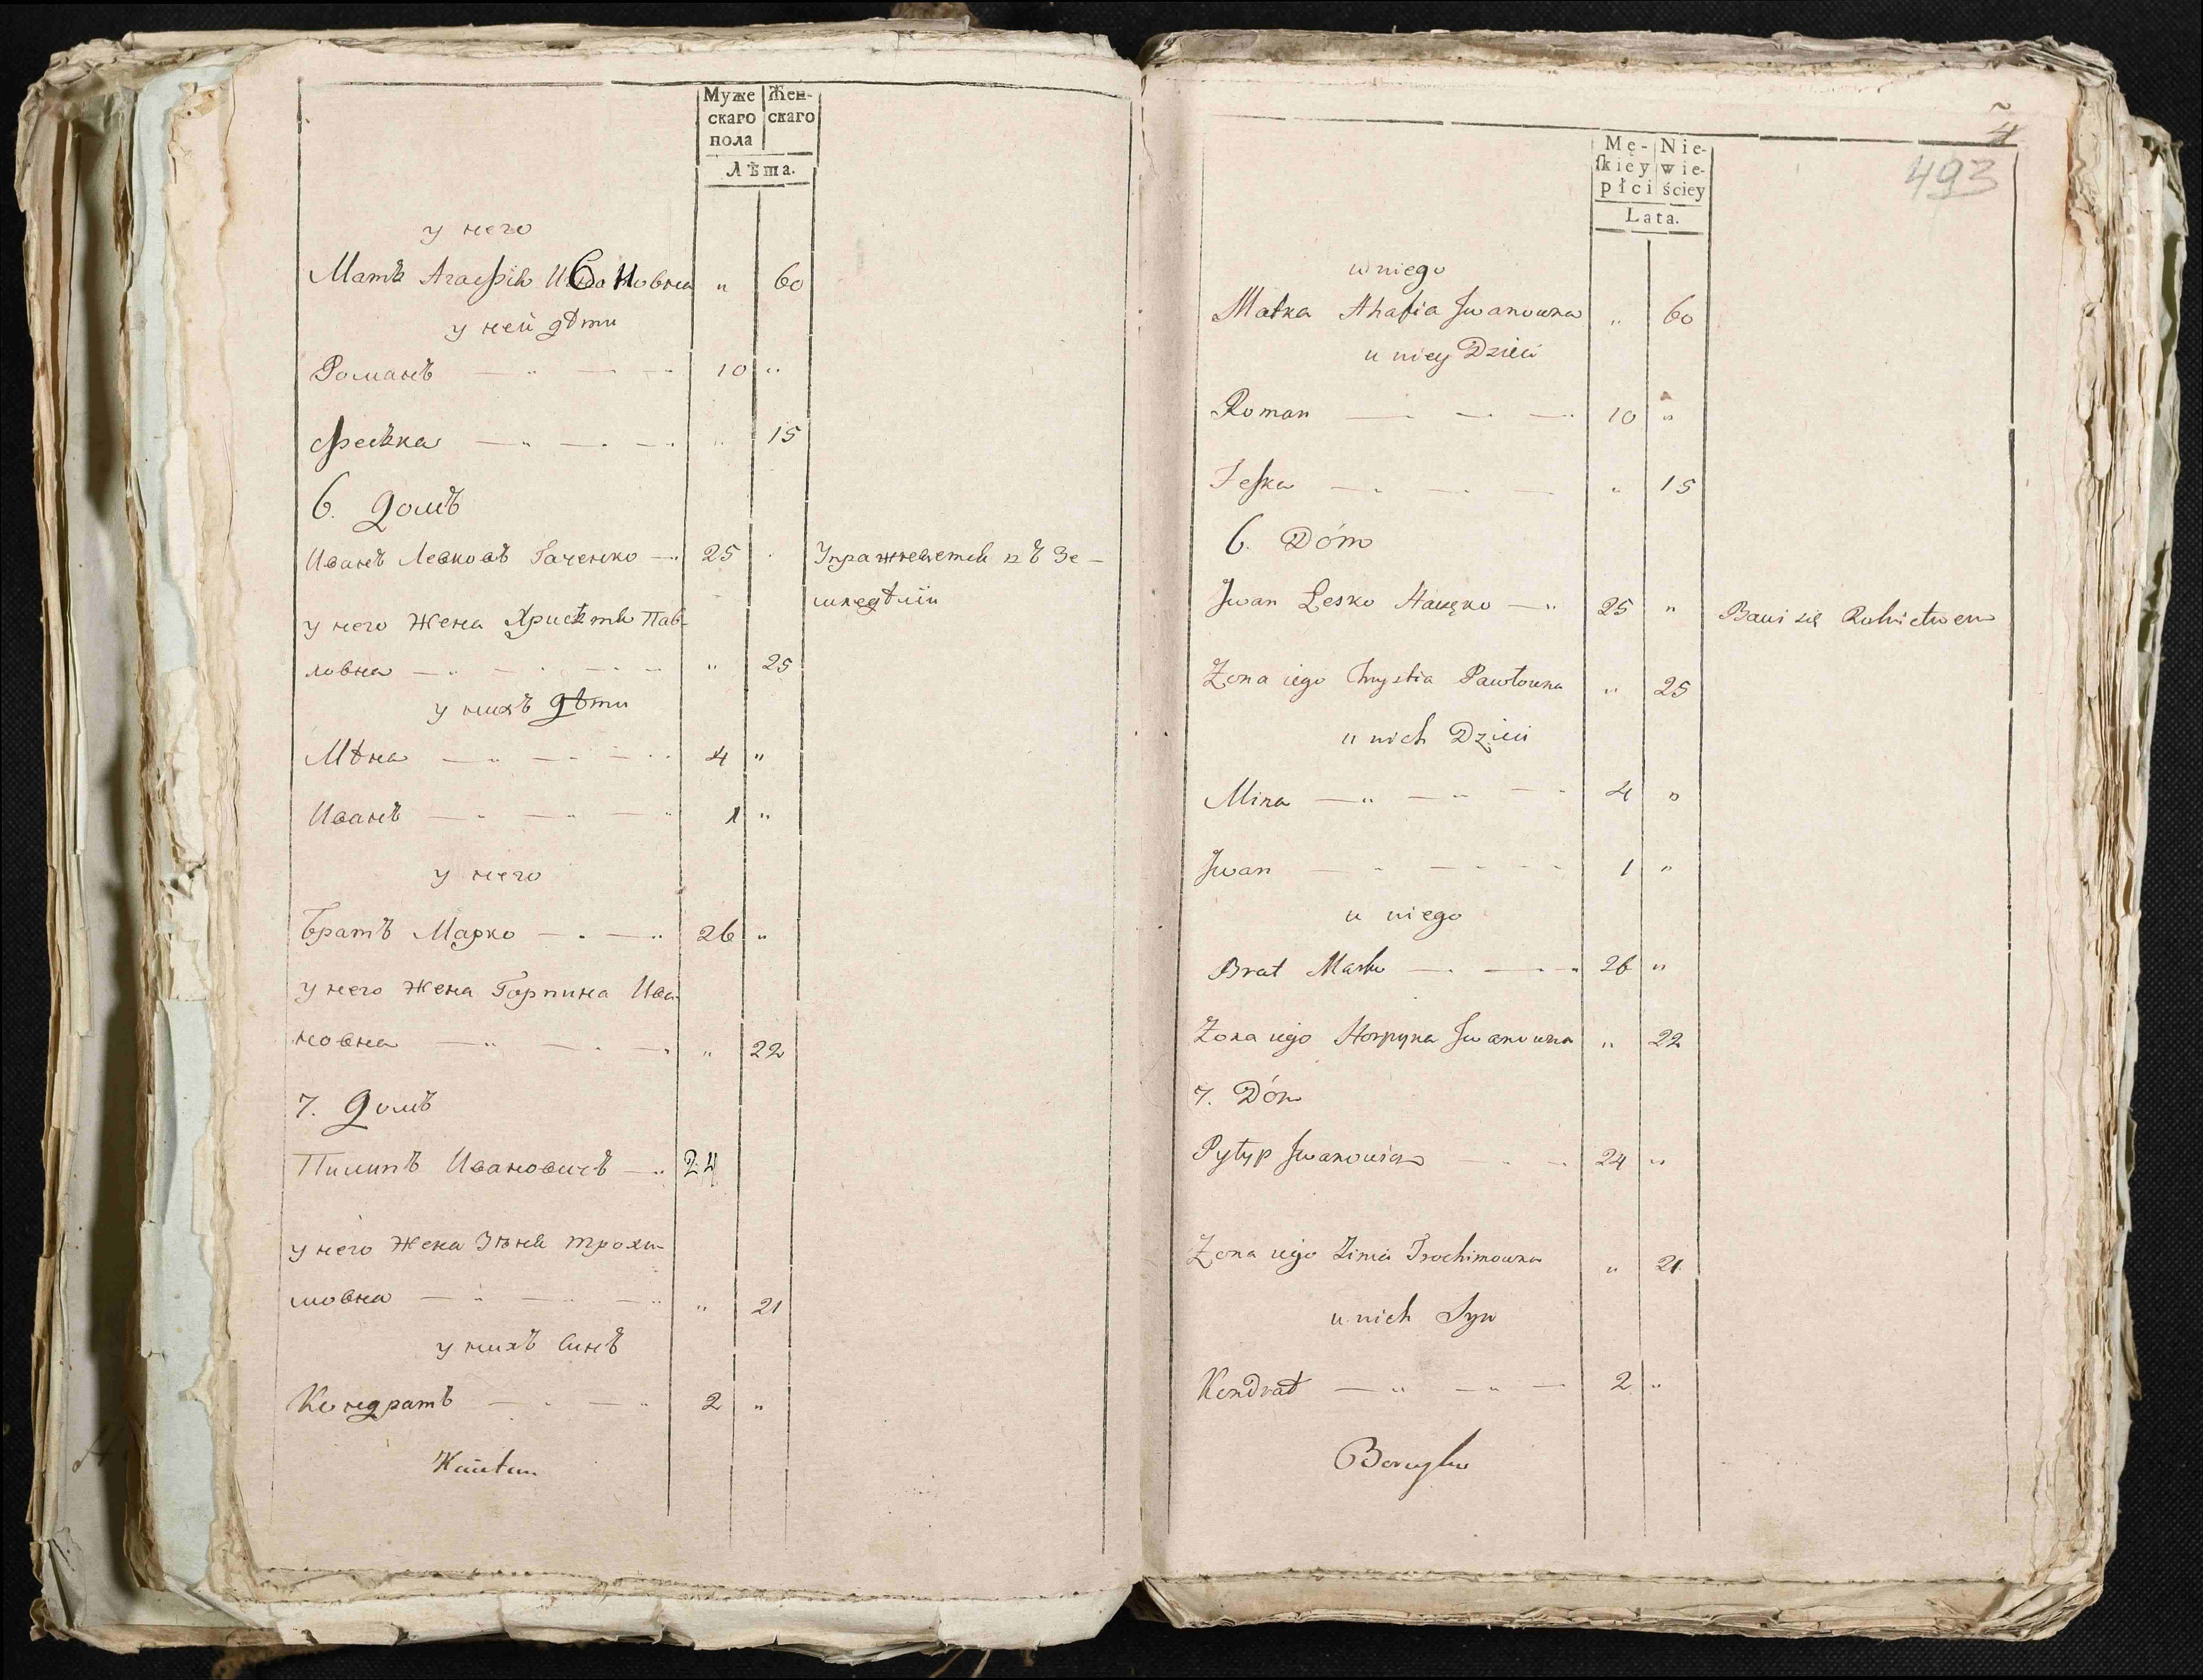 Муже Жен-
скаго скаго
пола
Лѣта.
у него
Мать Агафія Ивановна " 60
у ней дѣти
Романъ 10 "
Феська " 15
6. Домъ
Иванъ Левковъ Гаченко 25 Упражняется въ Зе-
мледѣліи
у него Жена Христя Пав-
ловна " 25
у нихъ дѣти
Мѣна 4 "
Иванъ 1 "
у него
Братъ Марко 26 "
у него Жена Горпина Ива-
новна " 22
7. Домъ
Пилипъ Ивановичъ 24
у него Жена Зѣня Трохи-
мовна " 21
у нихъ Синъ
Кондратъ 2 "
4
493
Mę- Nie-
ſkiey wie-
płci ściey
Lata.
u niego
Matka Ahafia Jwanowna " 60
u niey Dzieci
Roman 10 "
Feſka " 15
6. Dóm
Jwan Lesko Haczęko 25 " Bawi się Rolnictwem
Żona iego Chrystia Pawłowna " 25
u nich Dzieci
Mina 4 "
Jwan 1 "
u niego
Brat Marko 26 "
Żona iego Horpyna Jwanowna " 22
7. Dóm
Pyłyp Jwanowicz 24 "
Żona iego Zinia Trochimowna " 21
u nich Syn
Kondrat 2 "